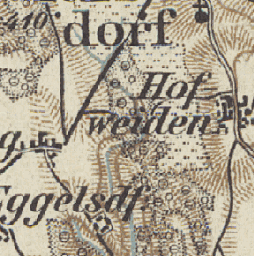 410
dorf
Hof
weiden
g
Eggelsdf.